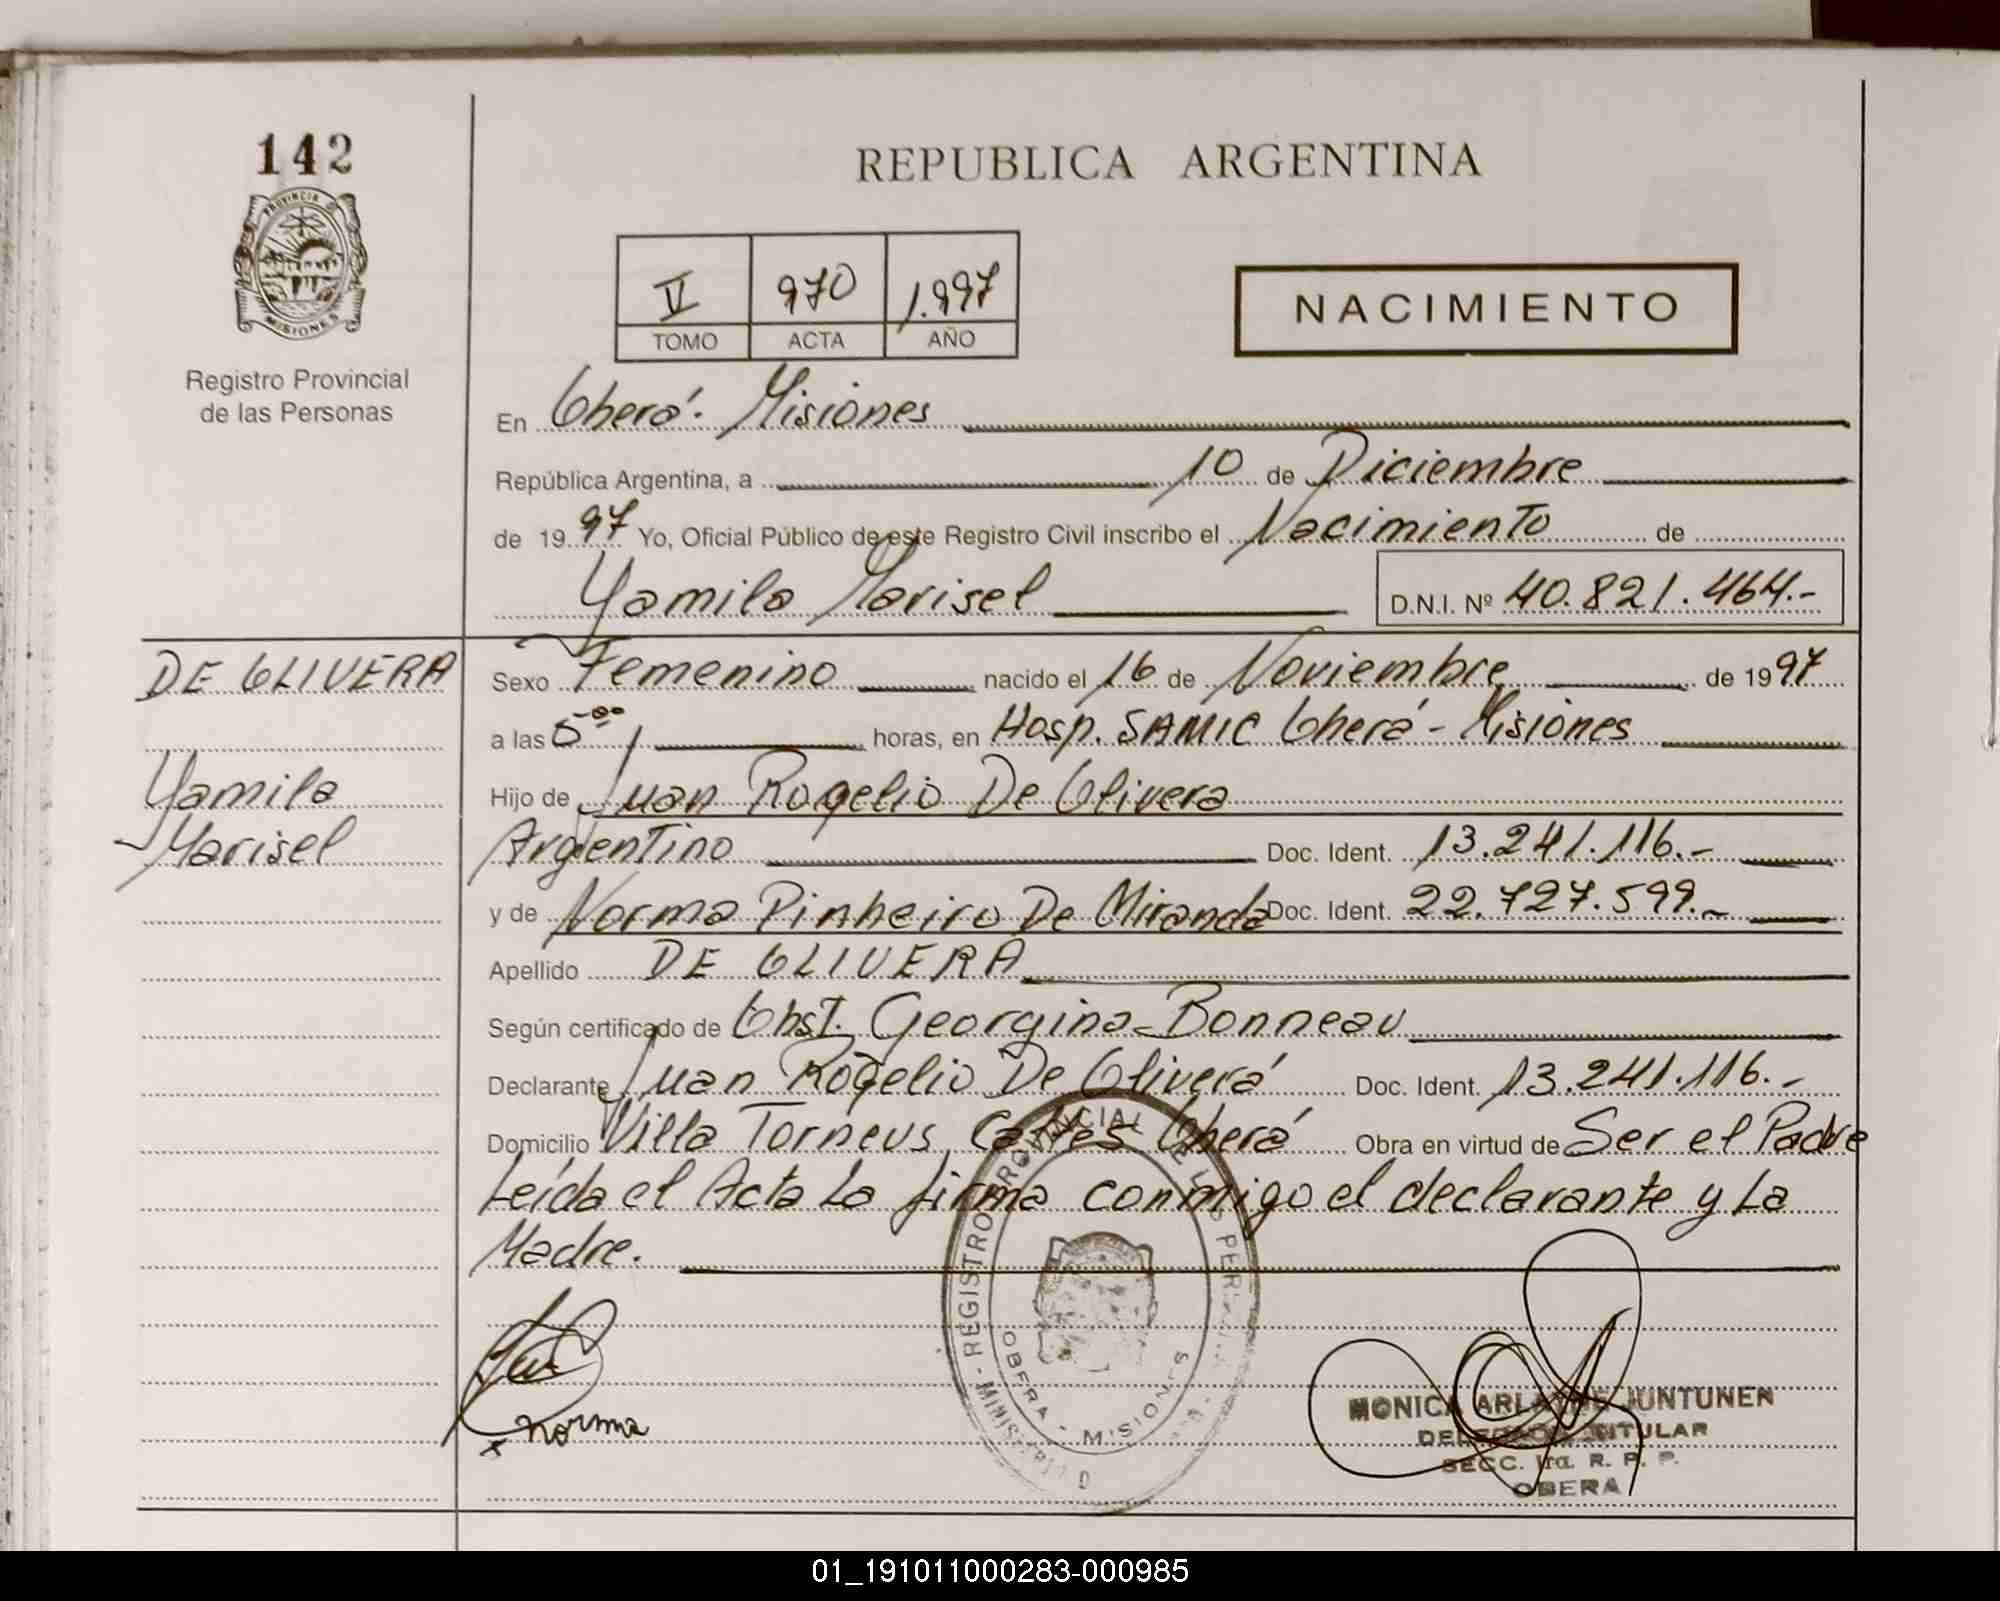 142
PROVINCIA
MISIONES
Registro Provincial
de las Personas
REPUBLICA ARGENTINA
V 970 1.997
TOMO ACTA AÑO
NACIMIENTO
En Oberá. Misiones
República Argentina, a 10 de Diciembre
de 1997 Yo, Oficial Público de este Registro Civil inscribo el Nacimiento de
Yamila Marisel D.N.I. Nº 40.821.464.-
DE OLIVERA
Yamila
Marisel
Sexo Femenino nacido el 16 de Noviembre de 1997
a las 5-00 horas, en Hosp. SAMIC Oberá - Misiones
Hijo de Juan Rogelio De Olivera
Argentino Doc. Ident. 13.241.116.-
y de Norma Pinheiro De Miranda Doc. Ident. 22.727.599.-
Apellido DE OLIVERA
Según certificado de Obst. Georgina Bonneau
Declarante Juan Rogelio De Olivera Doc. Ident. 13.241.116.-
Domicilio Villa Torneus Oberá Obra en virtud de Ser el Padre
Leída el Acta La firma conmigo el declarante y La
Madre.
REGISTRO PROVINCIAL DE LAS PERSONAS
OBERA - MISIONES
x norma
MONICA JUNTUNEN
TITULAR
SECC. 1ra. R. P. P.
OBERA
01_191011000283-000985